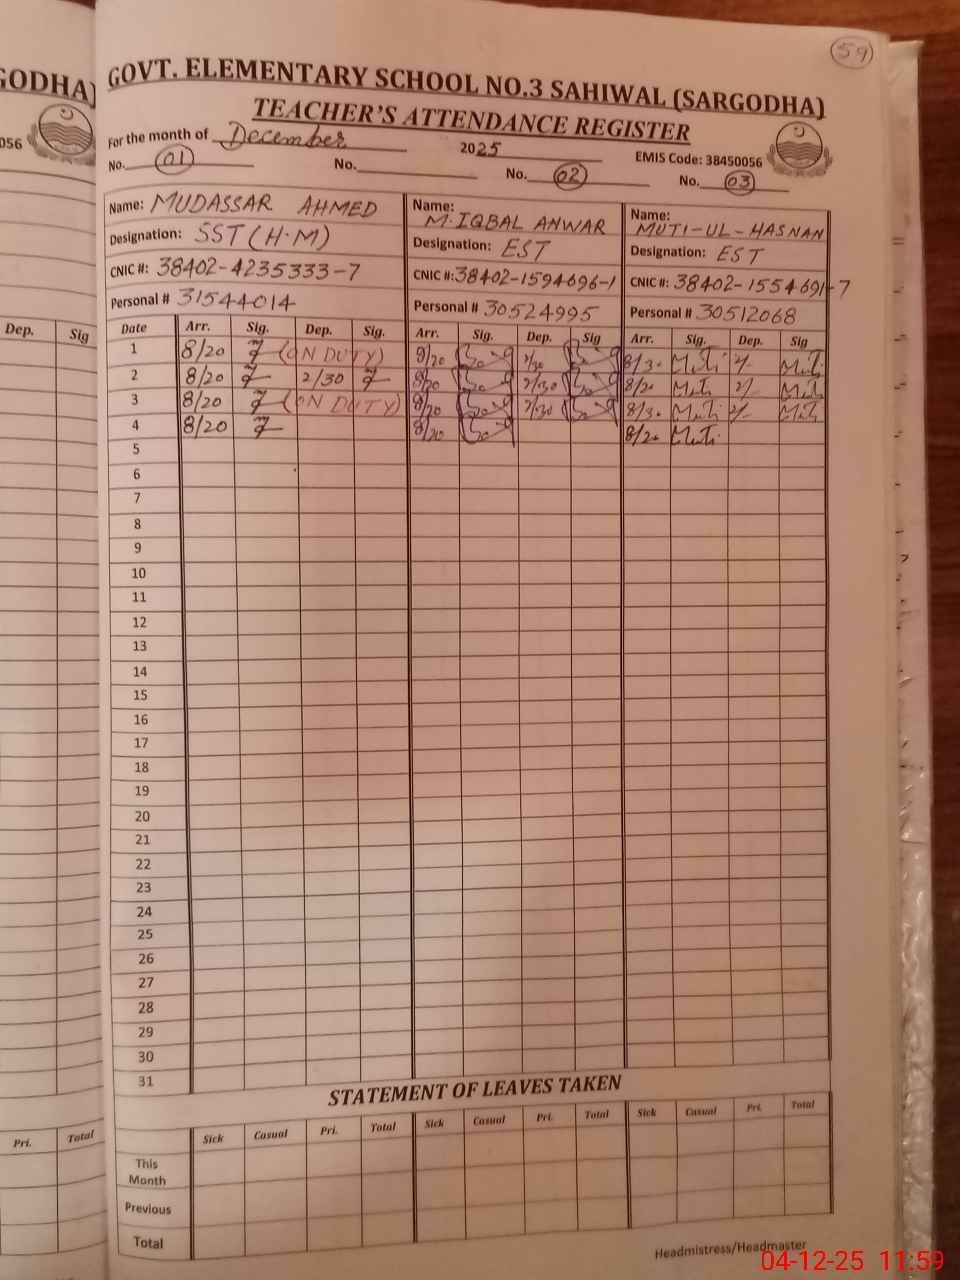 59
GOVT. ELEMENTARY SCHOOL NO.3 SAHIWAL (SARGODHA)
TEACHER'S ATTENDANCE REGISTER
For the month of December 2025 EMIS Code: 38450056
No. 01 No. No. 02 No. 03
Name: MUDASSAR AHMED Name: M. IQBAL ANWAR Name: MUTI-UL-HASNAN
Designation: SST (H.M) Designation: EST Designation: EST
CNIC #: 38402-4235333-7 CNIC #: 38402-1594696-1 CNIC #: 38402-1554691-7
Personal # 31544014 Personal # 30524995 Personal # 30512068
Date Arr. Sig. Dep. Sig. Arr. Sig. Dep. Sig Arr. Sig. Dep. Sig
1 8/20 (ON DUTY) 8/20 2/30 8/30 Muti 2/- Muti
2 8/20 2/30 8/20 2/30 8/20 Muti 2/- Muti
3 8/20 (ON DUTY) 8/20 2/30 8/30 Muti 2/- Muti
4 8/20 8/20 8/20 Muti
5
6
7
8
9
10
11
12
13
14
15
16
17
18
19
20
21
22
23
24
25
26
27
28
29
30
31
STATEMENT OF LEAVES TAKEN
Sick Casual Pri. Total Sick Casual Pri. Total Sick Casual Pri. Total
This
Month
Previous
Total
Headmistress/Headmaster
GODHA)
056
Dep. Sig
Pri. Total
04-12-25 11:59